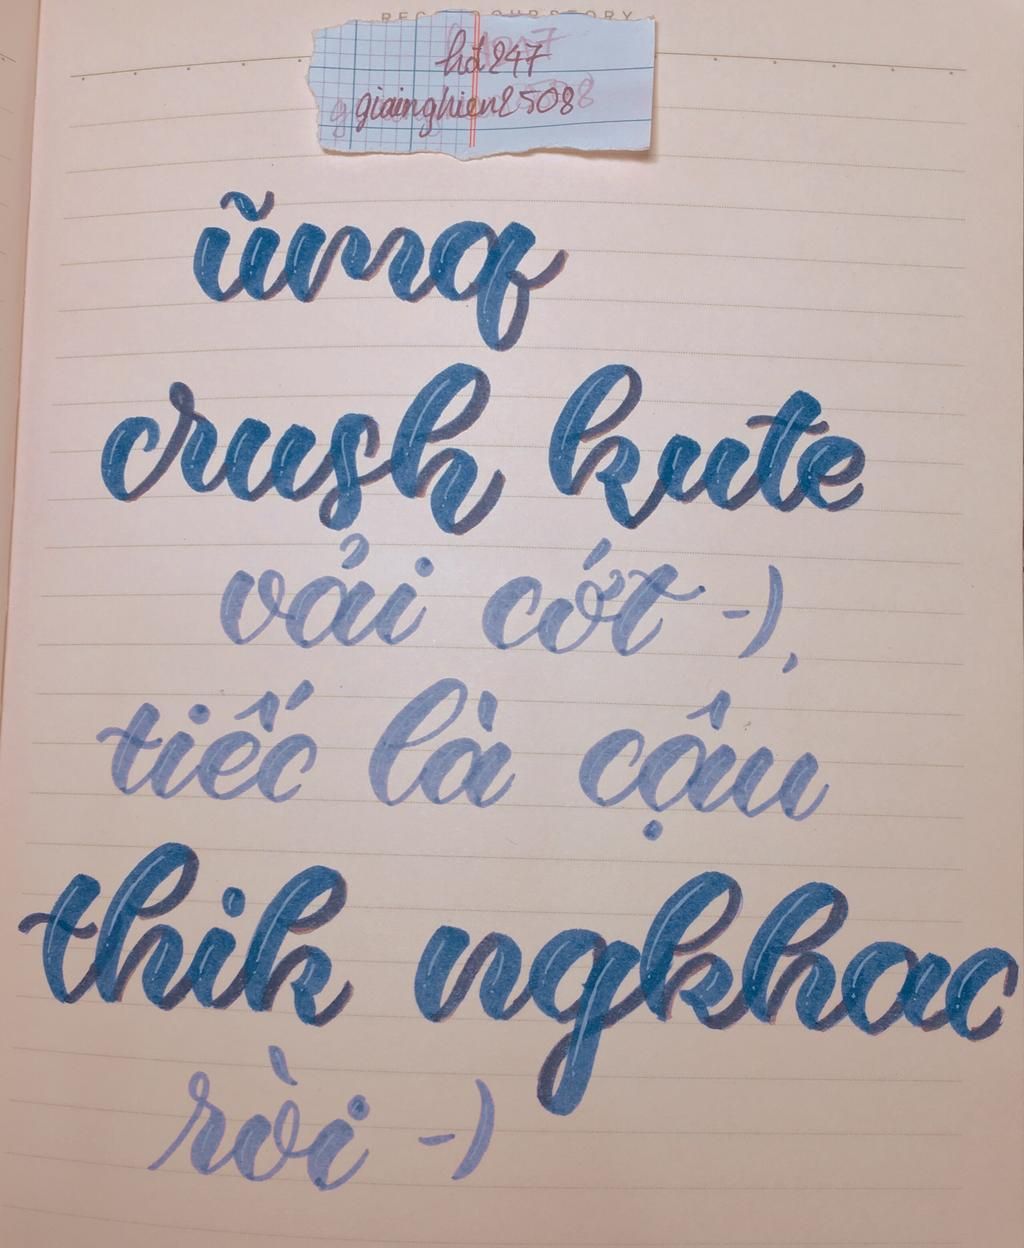 hđ247
giainghien2508
ũmq
crush kute
vải cớt -),
tiếc là cậu
thik ngkhac
ròi -)